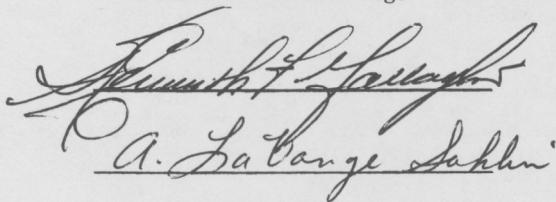 Kenneth F Gallagher
A. LaVonge Sahlin